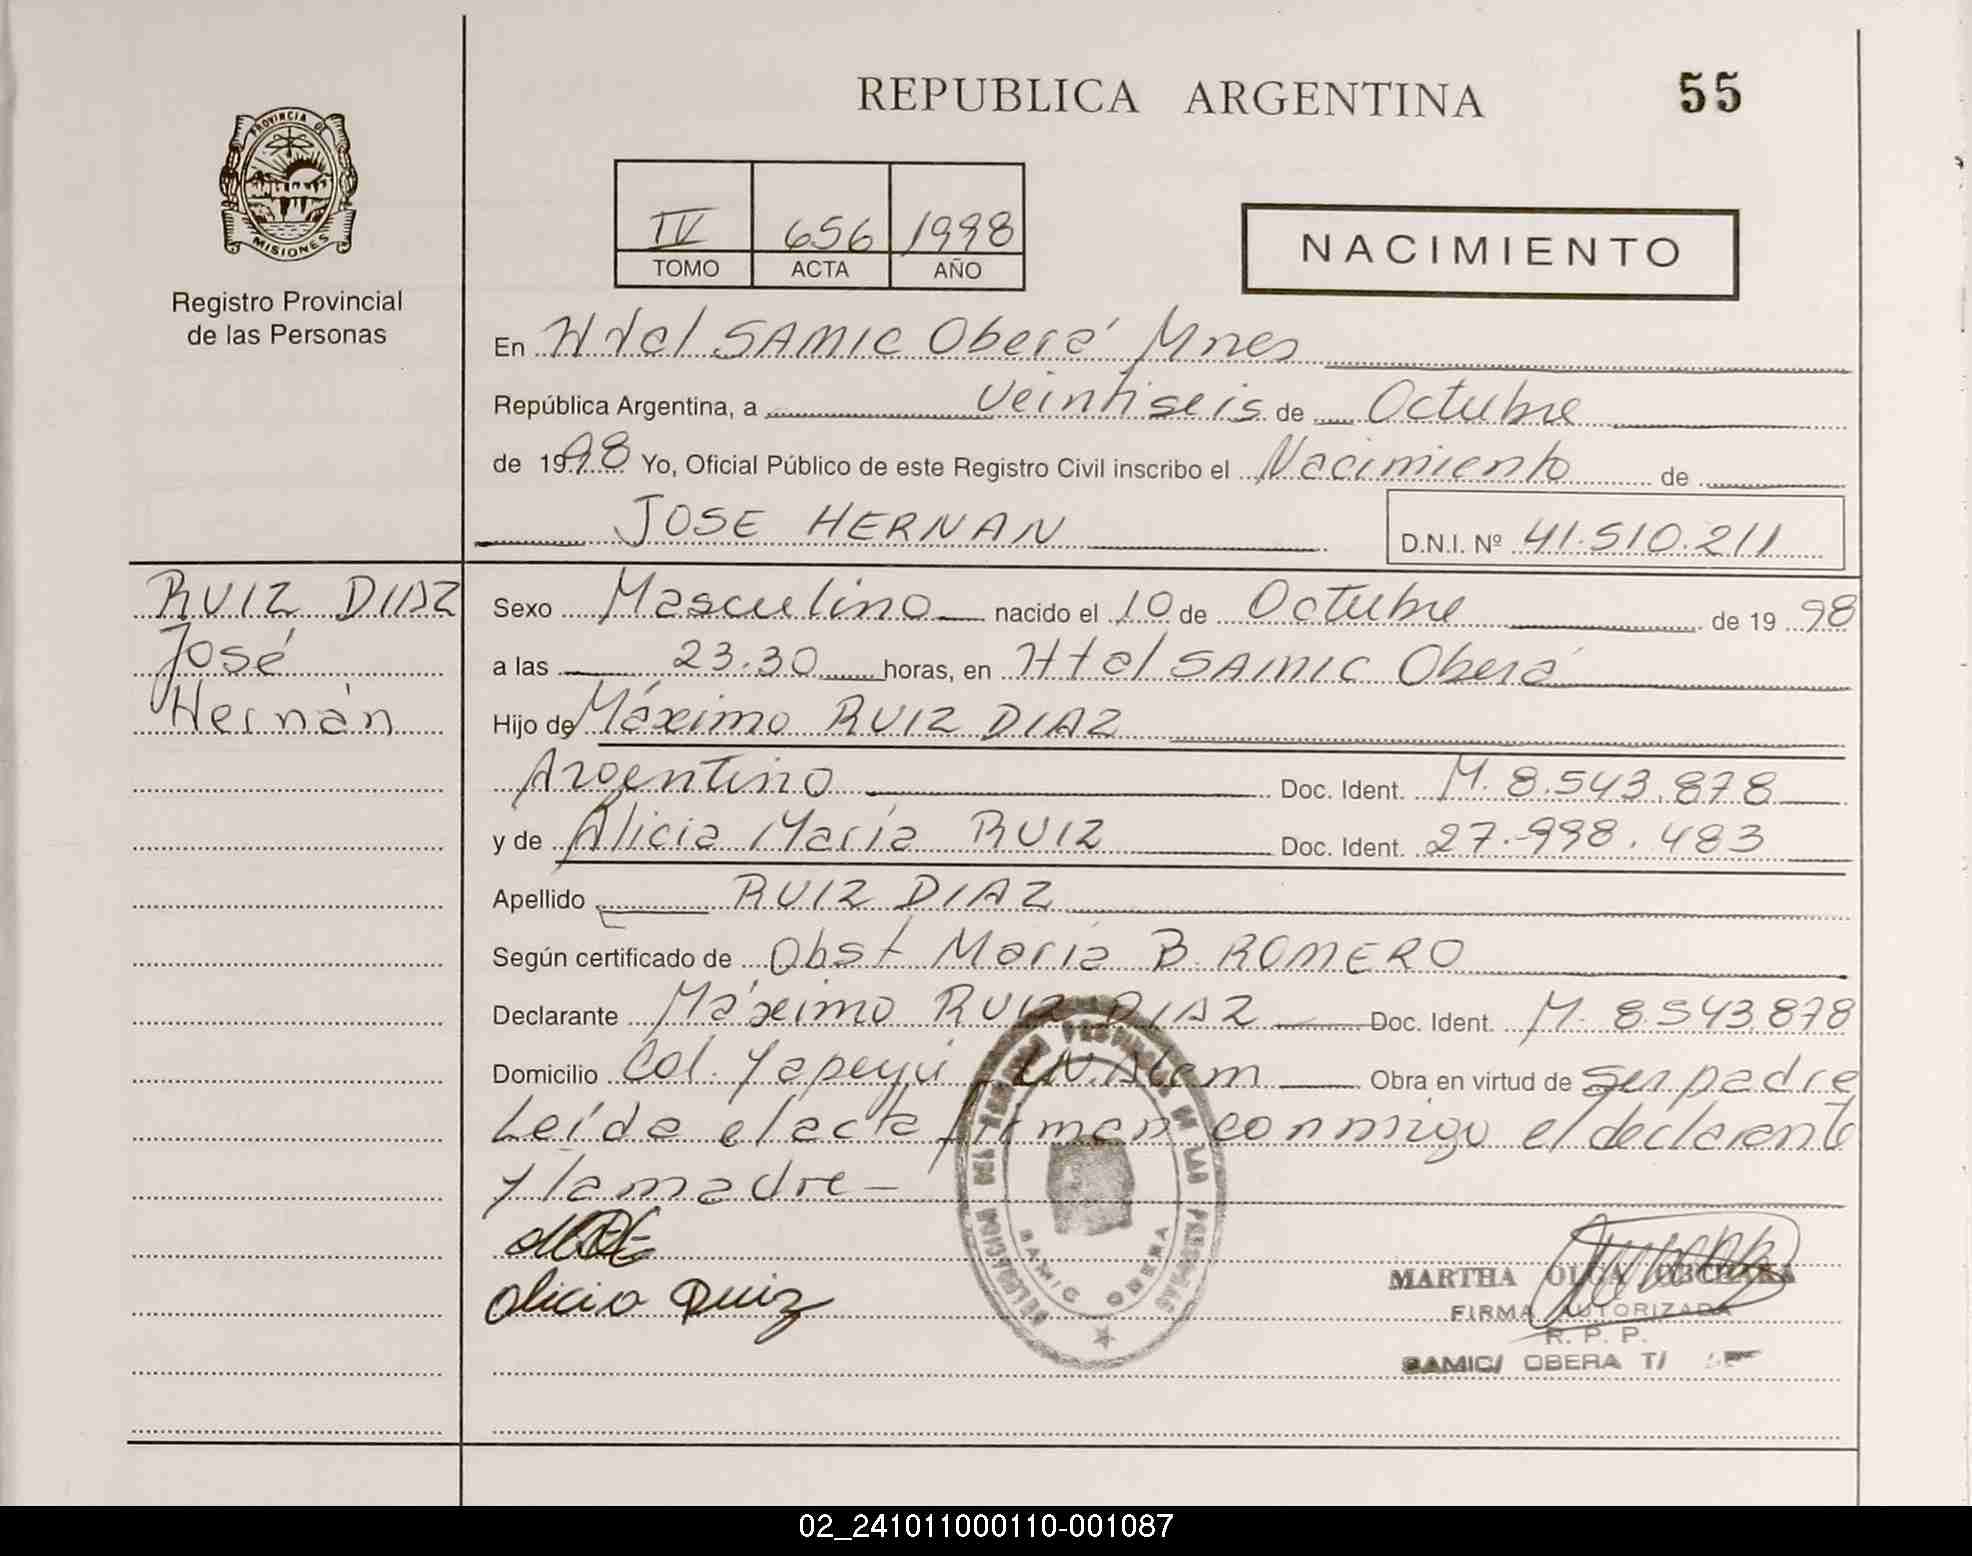 REPUBLICA ARGENTINA
55
PROVINCIA DE
MISIONES
Registro Provincial
de las Personas
IV 656 1998
TOMO ACTA AÑO
NACIMIENTO
En Htal SAMIC Oberá Mnes
República Argentina, a veintiseis de Octubre
de 1998 Yo, Oficial Público de este Registro Civil inscribo el Nacimiento de
JOSE HERNAN D.N.I. Nº 41.510.211
RUIZ DIAZ
José
Hernán
Sexo Masculino nacido el 10 de Octubre de 19 98
a las 23.30 horas, en Htal SAMIC Oberá
Hijo de Máximo RUIZ DIAZ
Argentino Doc. Ident. M. 8.543.878
y de Alicia María RUIZ Doc. Ident. 27.998.483
Apellido RUIZ DIAZ
Según certificado de Obst María B. ROMERO
Declarante Máximo RUIZ DIAZ Doc. Ident. M. 8.543.878
Domicilio Col. Yapeyú L.N.Alem Obra en virtud de ser padre
Leída el acta firman conmigo el declarante
y la madre -
Alicia Ruiz
PROVINCIAL DE LAS PERSONAS
SAMIC OBERA
MARTHA OLGA
FIRMA AUTORIZADA
R. P. P.
SAMIC/ OBERA T/
02_241011000110-001087